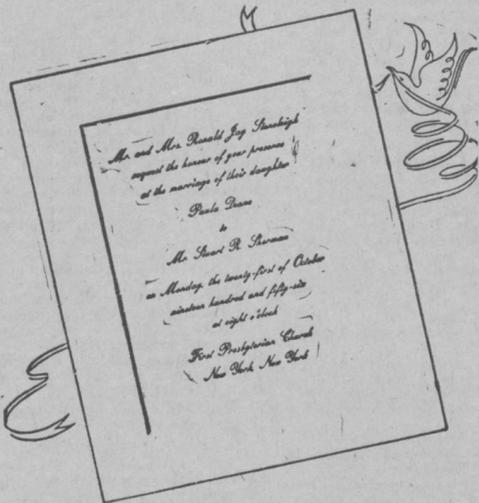 Mr. and Mrs. Ronald Jay Stansleigh
request the honour of your presence
at the marriage of their daughter
Paula Deane
to
Mr. Stuart R. Sherman
on Monday, the twenty-first of October
nineteen hundred and fifty-six
at eight o'clock
First Presbyterian Church
New York, New York